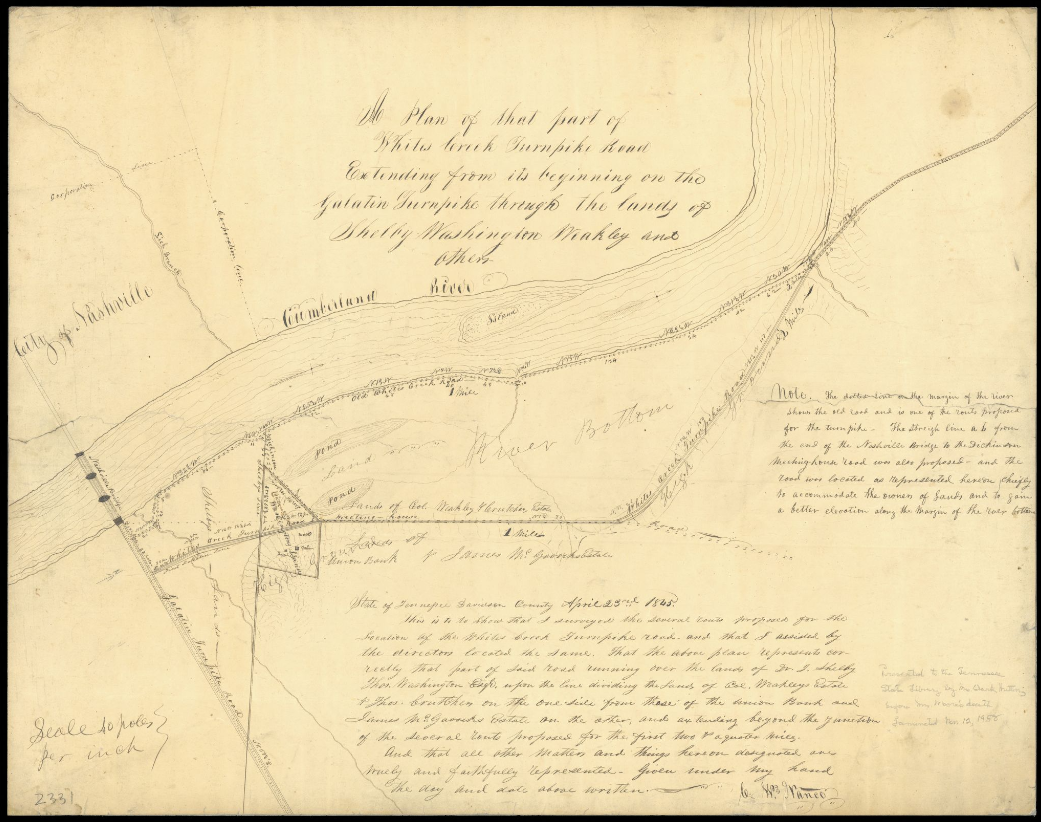 A Plan of that part of
Whites Creek Turnpike Road
Extending from its beginning on the
Galatin Turnpike through the lands of
Shelby Washington Weakley and
others
Corporation Line
Corporation Line
Sulphur
Branch
City of Nashville
Cumberland River
Island
Old Whites Creek Road
1 Mile
2 Mile
Pond
Pond
River Bottom
Lands of Col Weakley & Coutches Este
Meetinghouse
1 Mile
Whites Creek Turnpike Road
Road
Lands of
Union Bank & James McGavocks Estate
Shelby
Lands
Galatin Turnpike Road
Note. The dotted line on the margin of the river
shows the old road and is one of the routs proposed
for the turnpike - The Streigh line a b from
the end of the Nashville Bridge to the Dickinson
Meetinghouse road was also proposed - and the
road was located as represented hereon chiefly
to accommodate the owners of Lands and to gain
a better elevation along the Margin of the river bottom
State of Tennessee Davidson County April 23rd 1845.
This is to show that I surveyed the several routs proposed for the
location of the Whites Creek Turnpike road and that I assisted by
the directors located the same. That the above plan represents cor
rectly that part of said road running over the lands of Dr. J. Shelby
Thos. Washington Esqr. upon the line dividing the Lands of Col. Weakleys Estate
& Thos. Coutches on the one side from those of the Union Bank and
James McGavocks Estate on the other, and extending beyond the junction
of the several routs proposed for the first two & a quater Miles.
And that all other Matters and things hereon designated are
truely and faithfully represented - Given under my hand
the day and date above written.
C. Wm Nance
Presented to the Tennessee
State Library by
Scale 40 poles
per inch
2331